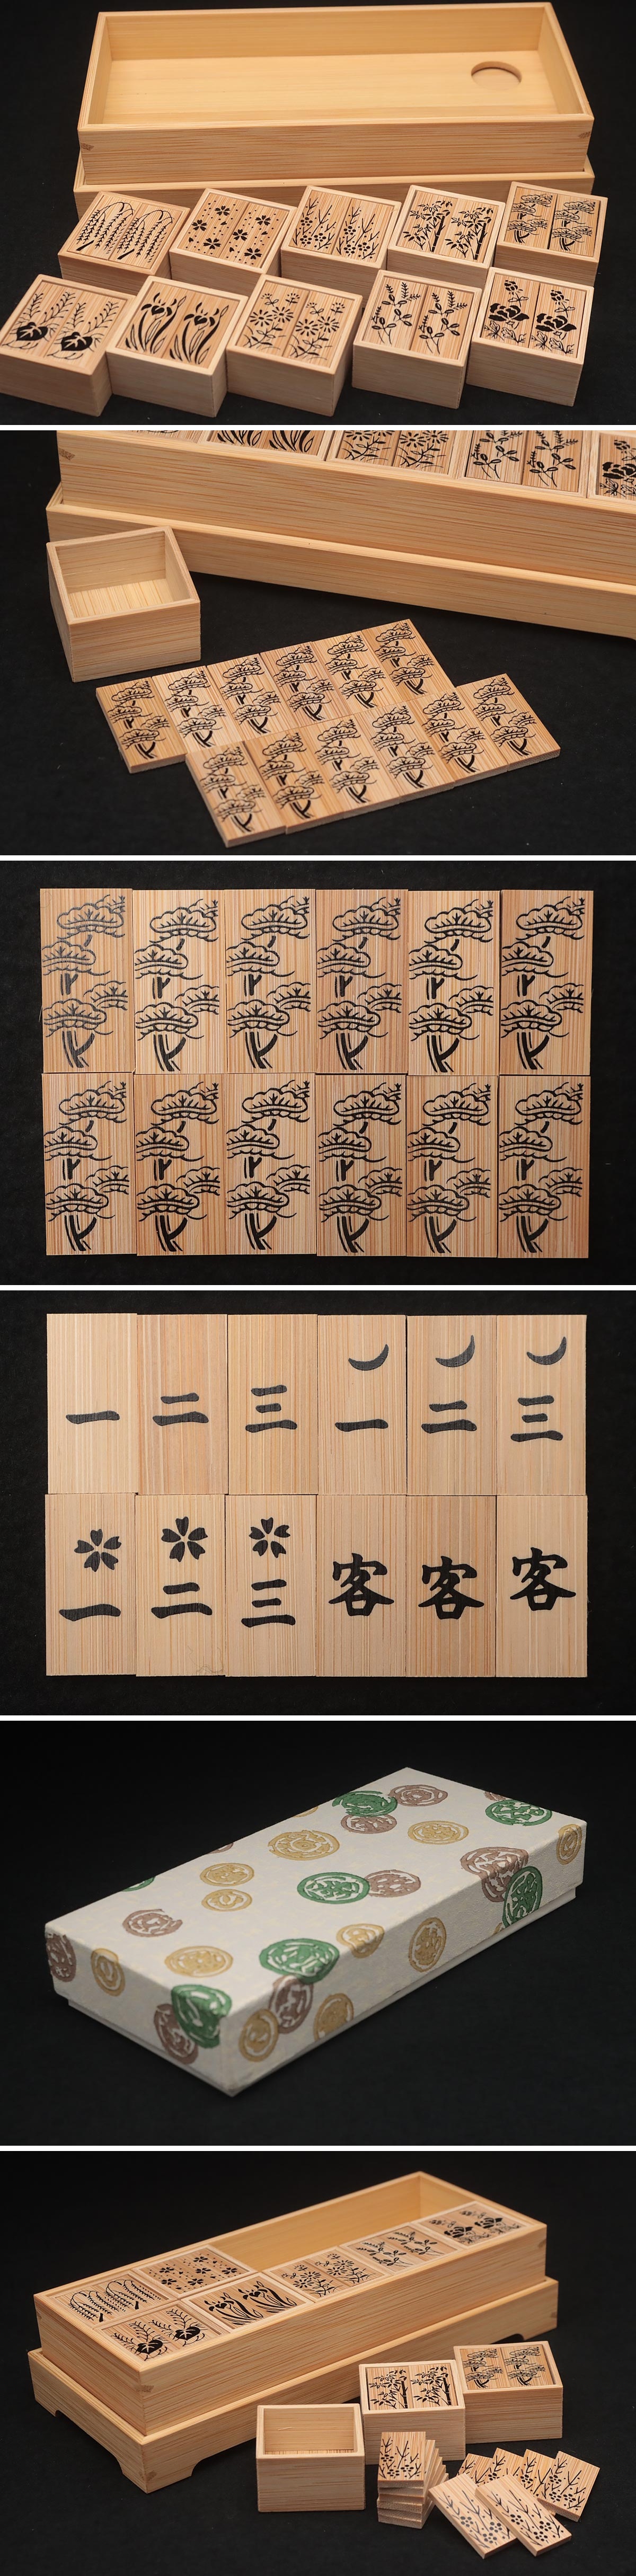 一 二 三 一 二 三
一 二 三 客 客 客